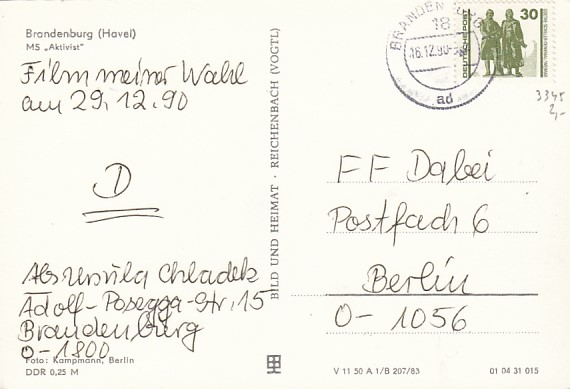 Brandenburg (Havel)
MS „Aktivist“
Film meiner Wahl
am 29.12.90
D
Abs Ursula Chladek
Adolf-Posegga-Str. 15
Brandenburg
O-1800
Foto: Kampmann, Berlin
DDR 0,25 M
BILD UND HEIMAT · REICHENBACH (VOGTL)
BRANDENBURG
18
16.12.90
ad
DEUTSCHE POST
30
3345
2,-
FF Dabei
Postfach 6
Berlin
O-1056
V 11 50 A 1/B 207/83
01 04 31 015